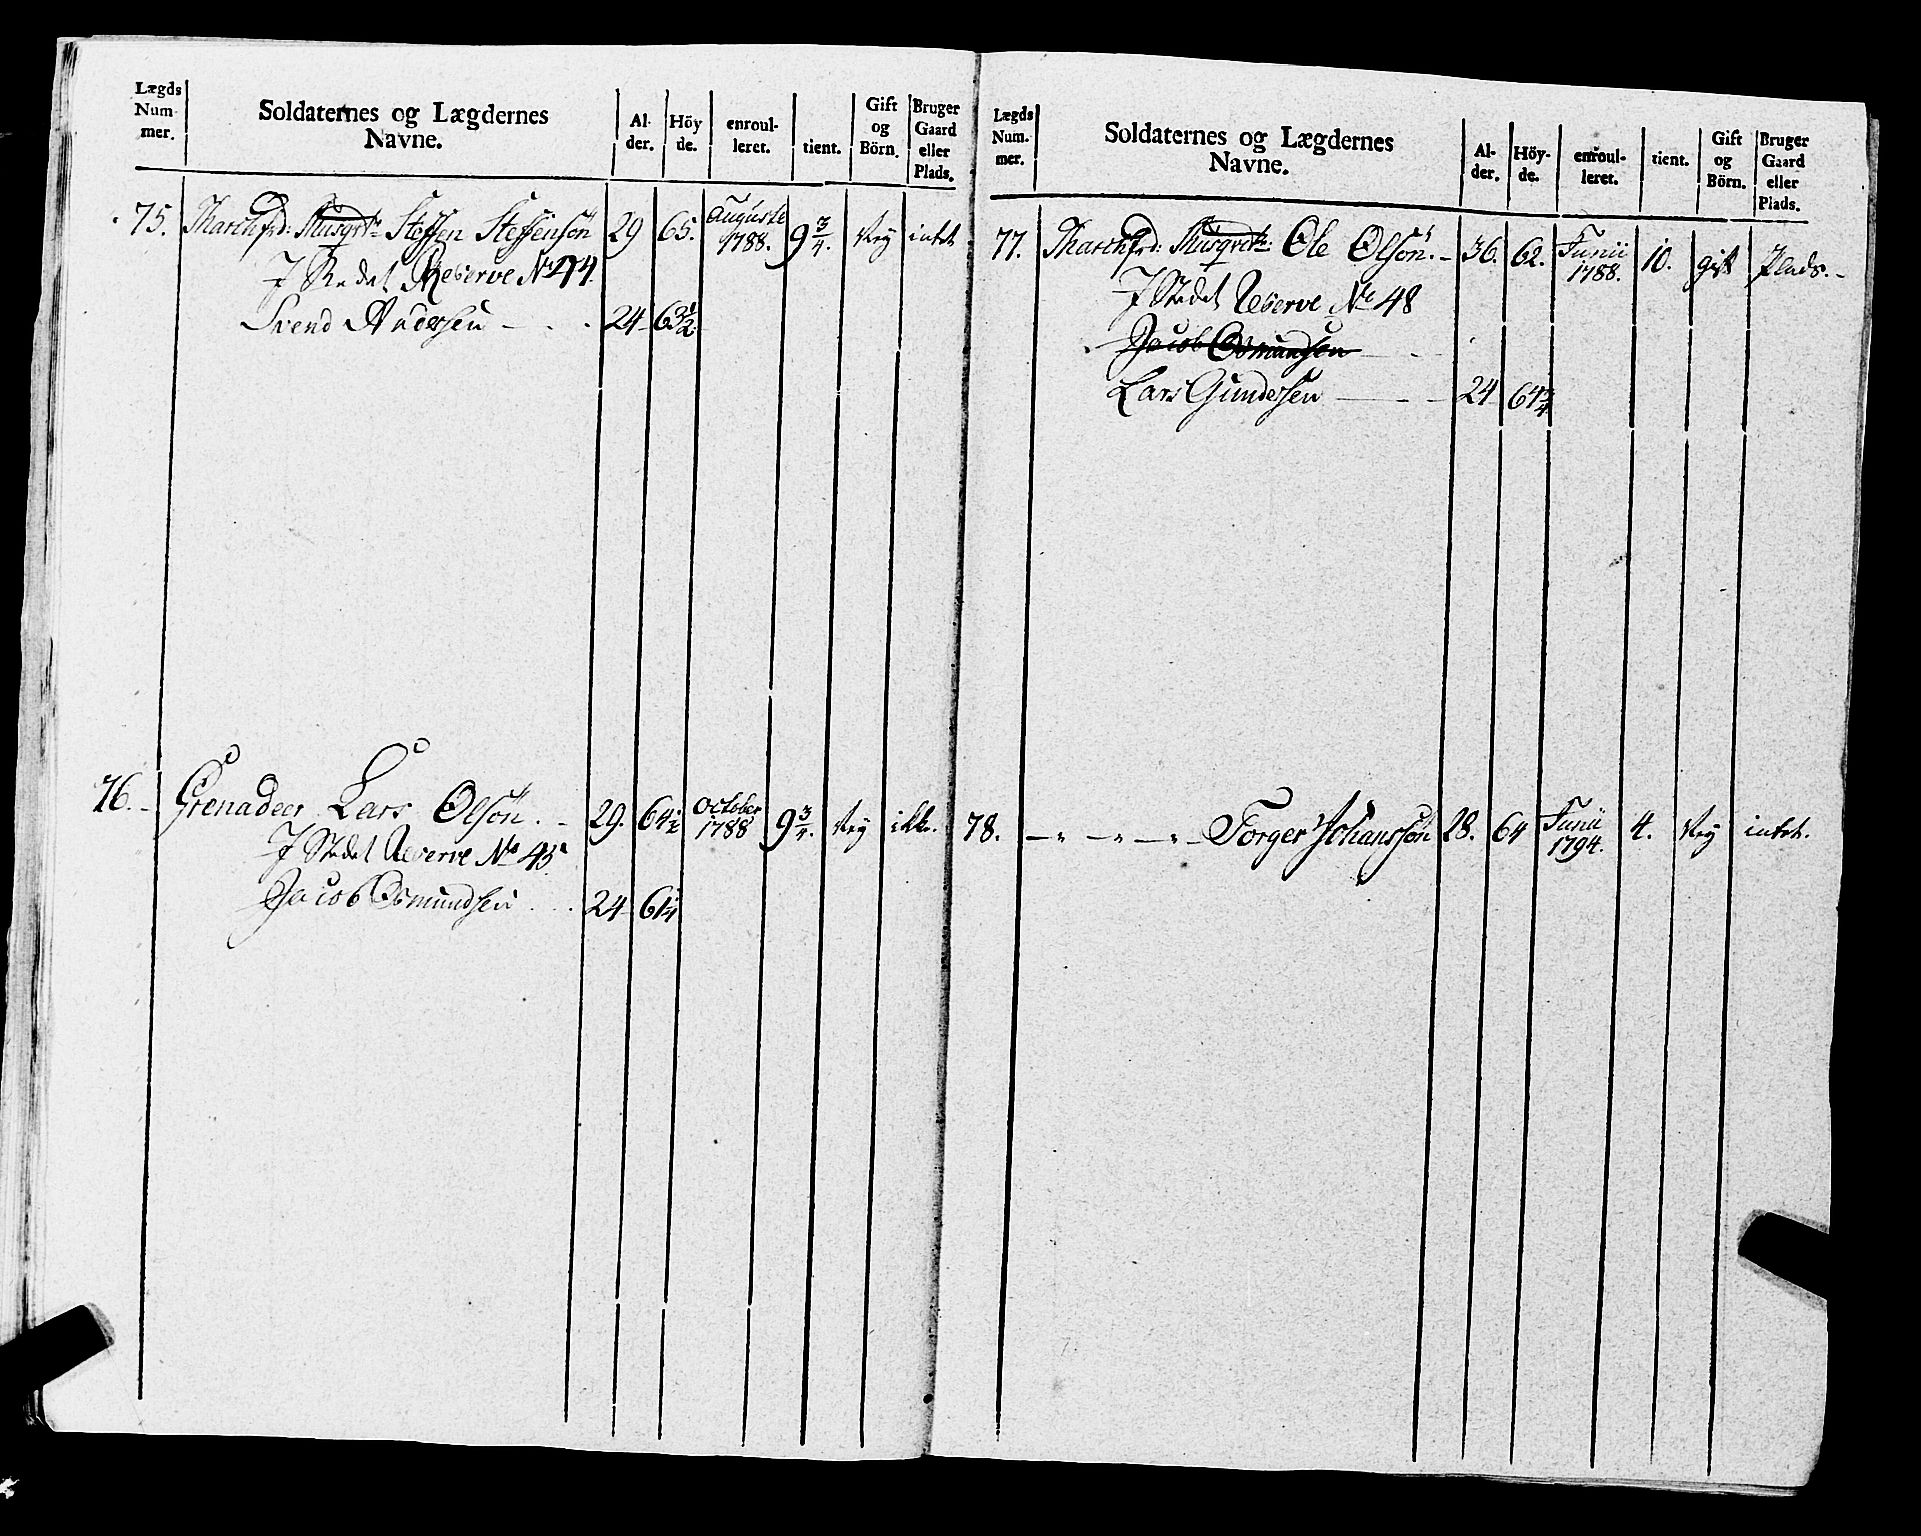 Lægds Num- mer.
Soldaternes og Lægdernes Navne.
Al- der.
Höy de.
enroul- leret.
tient.
Gift og Börn.
Bruger Gaard eller Plads.
75. Marchfrd: Musqvtr Steffen Steffensön 29 65. Auguste 1788. 9 3/4. Ney intet
I Stedet Reserve No 44.
Svend Andersen - . . 24 63 1/2
76. Grenadeer Lars Olsön. 29. 64 1/2 October 1788 9 3/4. Ney ikke.
I Stedet Reserve No 45.
Jacob Osmundsen . . 24 61 1/4
Lægds Num- mer.
Soldaternes og Lægdernes Navne.
Al- der.
Höy- de.
enroul- leret.
tient.
Gift og Börn.
Bruger Gaard eller Plads.
77. Marchfrd: Musqvtr: Ole Olsön. 36. 62. Junii 1788. 10. gift Plads.
I Stedet Reserve No 48
Jacob Osmundsen
Lars Gundersen 24 64 3/4
78. -"-"-"- Torger Johanssön 28. 64 Junii 1794. 4. Ney intet.